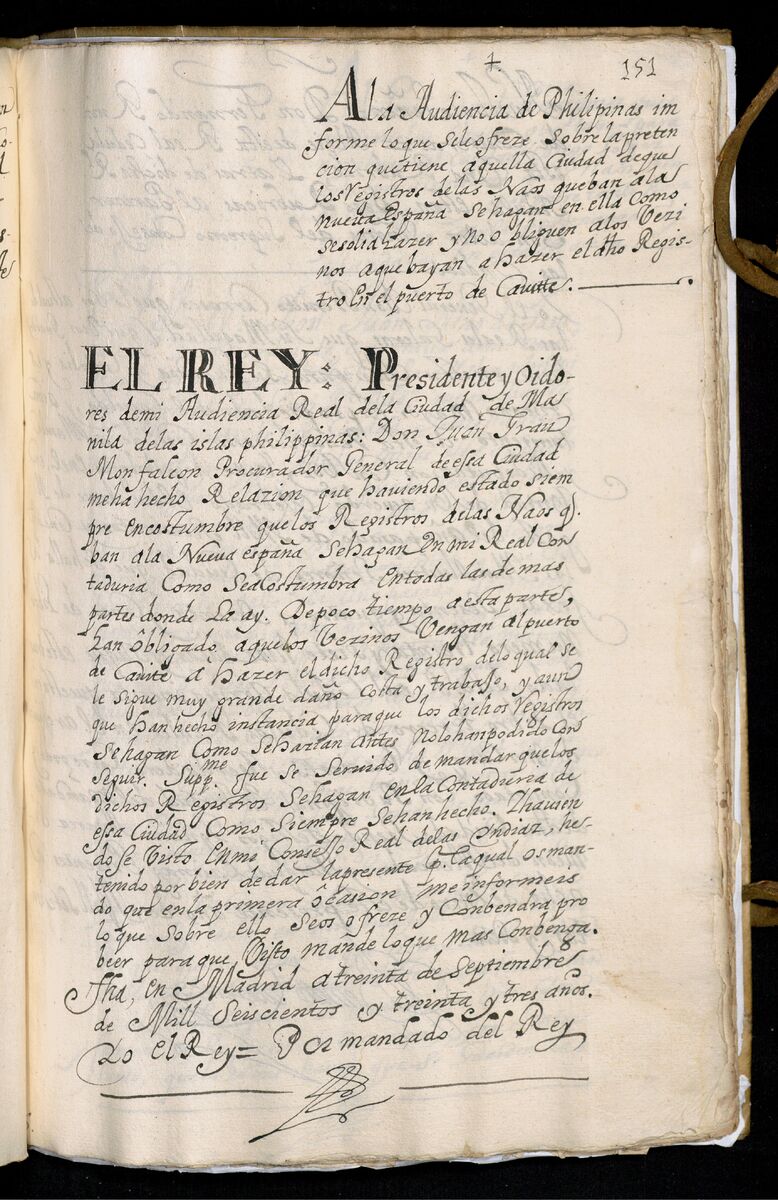 +
151
A la Audiencia de Philipinas im
forme lo que Sele ofreze Sobre la preten
cion que tiene aquella Ciudad de que
los Registros de las Naos que ban a la
nueva España Sehagan en ella Como
se solia hazer y no obliguen a los Vezi
nos a que bayan a hazer el dho Regis-
tro En el puerto de Cavitte.
EL REY: Presidente y Oido-
res de mi Audiencia Real de la Ciudad de Ma
nila de las islas philippinas: Don Juan Grau
Monfalcon Procurador General de essa Ciudad
me ha hecho Relazion que haviendo estado Siem
pre en costumbre que los Registros de las Naos q.
ban a la Nueva españa Sehagan En mi Real Con
taduria Como Se acostumbra en todas las de mas
partes donde La ay. De poco tiempo a esta parte,
han óbligado aquelos Vezinos Vengan al puerto
de Cavite á hazer el dicho Registro de lo qual se
le sigue muy grande daño costa y trabajo, y aun
que han hecho instancia para que los dichos Registros
Sehagan Como Sehazian antes No lo han podido Con
seguir. Supp.me fue se Servido de mandar que los
dichos Registros Sehagan en la Contaduria de
essa Ciudad Como Siempre Sehan hecho. Thavien
do se Visto En mi Consejo Real de las Indias, he-
tenido por bien de dar la presente p. la qual os man-
do que en la primera ócasion me informeis
lo que Sobre ello Seos ofreze y Conbendra pro
beer para que, Visto mande lo que mas Conbenga.
fha, en Madrid a treinta de Septiembre
de Mill Seiscientos y treinta y tres años.
Yo el Rey= Por mandado del Rey